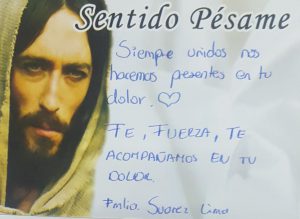 Sentido Pésame
Siempre unidos nos
hacemos presentes en tu
dolor.
FE, FUERZA, TE
ACOMPAÑAMOS EN TU
DOLOR.
Suarez Lima